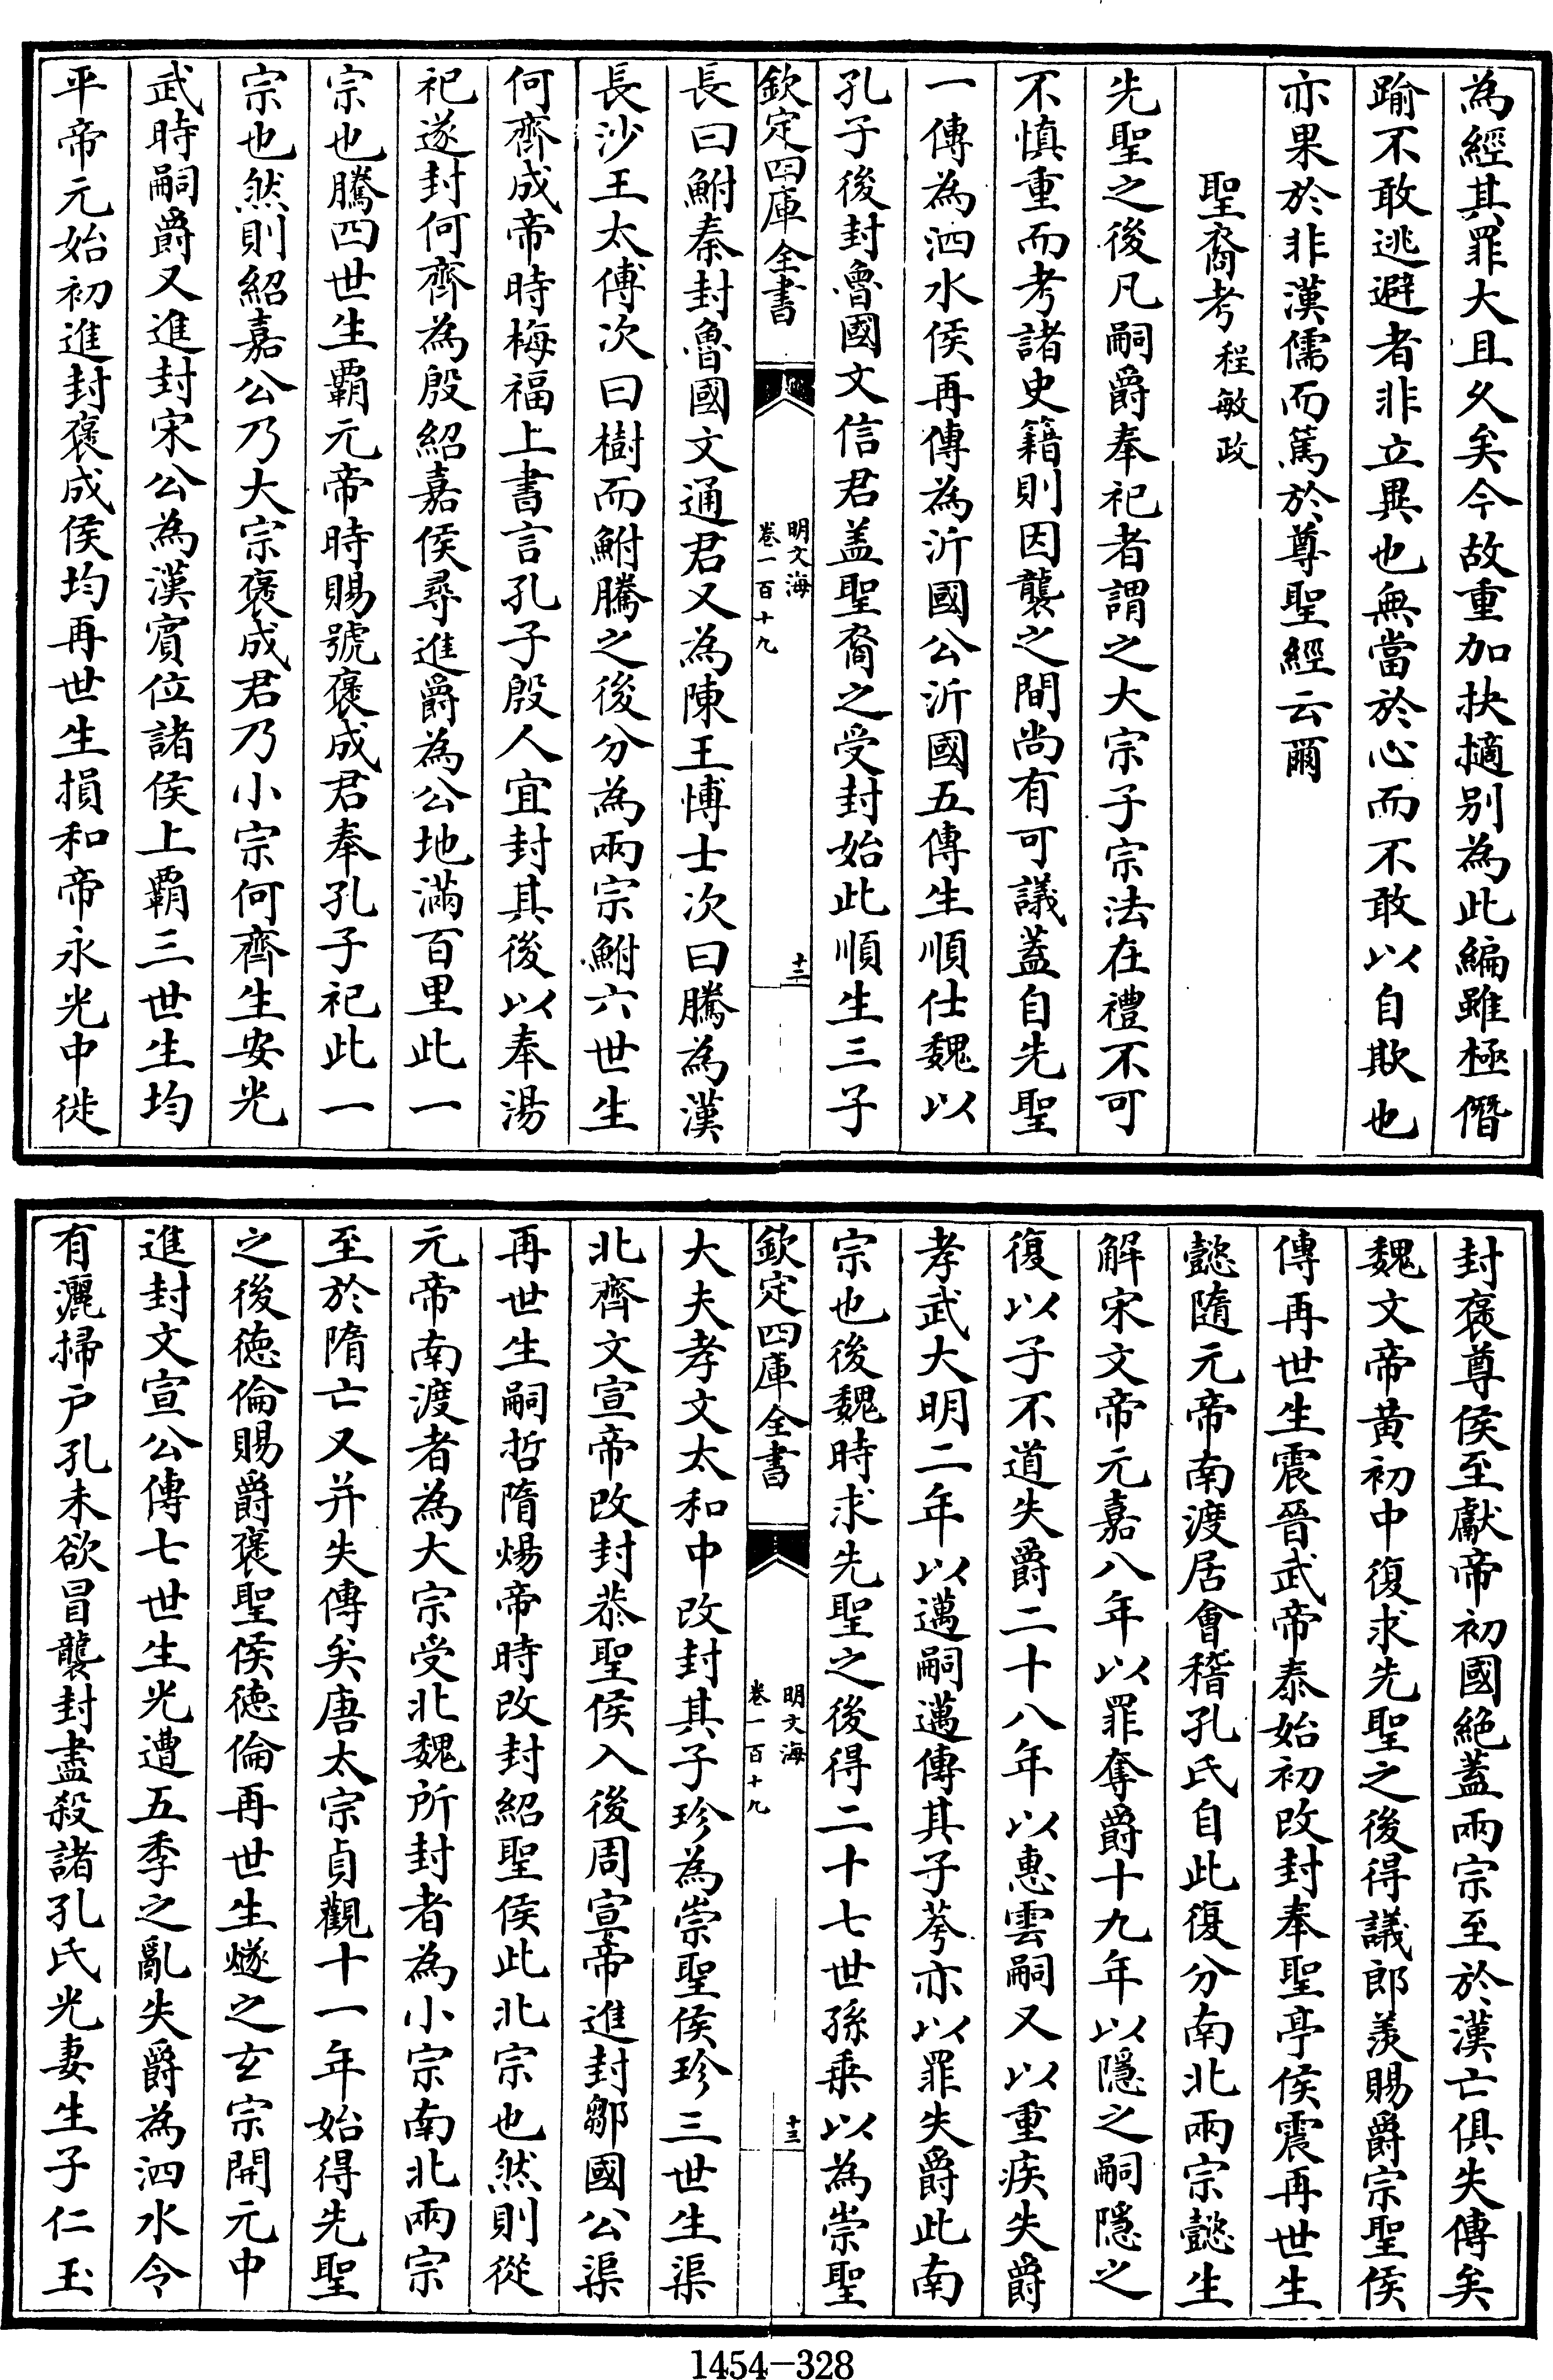 為經其罪大且久矣今故重加抉擿别為此編雖極僭
踰不敢逃避者非立異也無當於心而不敢以自欺也
亦果於非漢儒而篤於尊聖經云爾
聖裔考程敏政
先聖之後凡嗣爵奉祀者謂之大宗子宗法在禮不可
不慎重而考諸史籍則因襲之間尚有可議蓋自先聖
一傳為泗水侯再傳為沂國公沂國五傳生順仕魏以
孔子後封魯國文信君盖聖裔之受封始此順生三子
欽定四庫全書
明文海
卷一百十九
十二
長曰鮒秦封魯國文通君又為陳王博士次曰騰為漢
長沙王太傅次曰樹而鮒騰之後分為兩宗鮒六世生
何齊成帝時梅福上書言孔子殷人宜封其後以奉湯
祀遂封何齊為殷紹嘉侯尋進爵為公地滿百里此一
宗也騰四世生覇元帝時賜號褒成君奉孔子祀此一
宗也然則紹嘉公乃大宗褒成君乃小宗何齊生安光
武時嗣爵又進封宋公為漢賓位諸侯上覇三世生均
平帝元始初進封褒成侯均再世生損和帝永光中徙
封褒尊侯至獻帝初國絶蓋兩宗至於漢亡俱失傳矣
魏文帝黄初中復求先聖之後得議郎羨賜爵宗聖侯
傳再世生震晉武帝泰始初改封奉聖亭侯震再世生
懿隨元帝南渡居會稽孔氏自此復分南北兩宗懿生
解宋文帝元嘉八年以罪奪爵十九年以隱之嗣隱之
復以子不道失爵二十八年以惠雲嗣又以重疾失爵
孝武大明二年以邁嗣邁傳其子荂亦以罪失爵此南
宗也後魏時求先聖之後得二十七世孫乗以為崇聖
欽定四庫全書
明文海
卷一百十九
十三
大夫孝文太和中改封其子珍為崇聖侯珍三世生渠
北齊文宣帝改封恭聖侯入後周宣帝進封鄒國公渠
再世生嗣哲隋煬帝時改封紹聖侯此北宗也然則從
元帝南渡者為大宗受北魏所封者為小宗南北兩宗
至於隋亡又并失傳矣唐太宗貞觀十一年始得先聖
之後徳倫賜爵褒聖侯徳倫再世生燧之玄宗開元中
進封文宣公傳七世生光遭五季之亂失爵為泗水令
有灑掃户孔末欲冒襲封盡殺諸孔氏光妻生子仁玉
1454-328